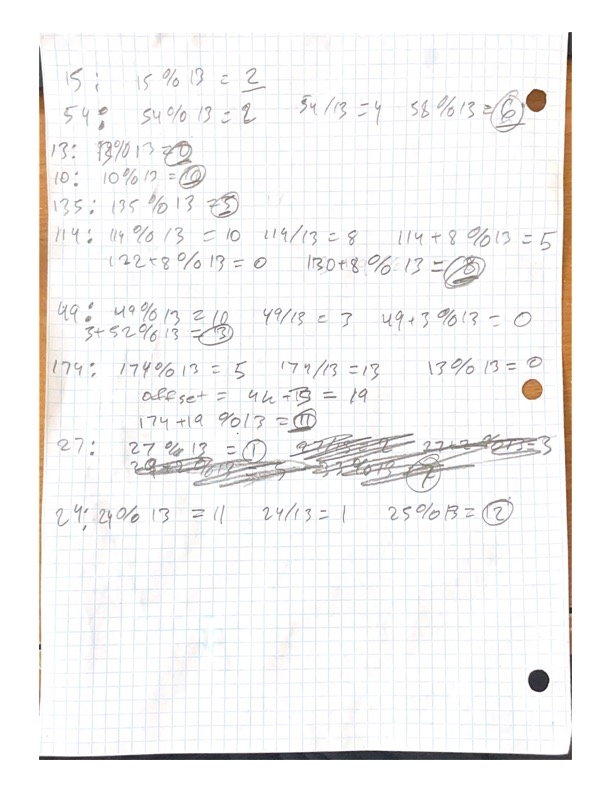 15: 15 % 13 = 2
54: 54 % 13 = 2 54/13 = 4 58 % 13 = 6
13: 13 % 13 = 0
10: 10 % 13 = 10
135: 135 % 13 = 5
114: 114 % 13 = 10 114/13 = 8 114 + 8 % 13 = 5
122 + 8 % 13 = 0 130 + 8 % 13 = 8
49: 49 % 13 = 10 49/13 = 3 49 + 3 % 13 = 0
3 + 52 % 13 = 3
174: 174 % 13 = 5 174/13 = 13 13 % 13 = 0
offset = 19
174 + 19 % 13 = 11
27: 27 % 13 = 1 = 3
7
24: 24 % 13 = 11 24/13 = 1 25 % 13 = 12